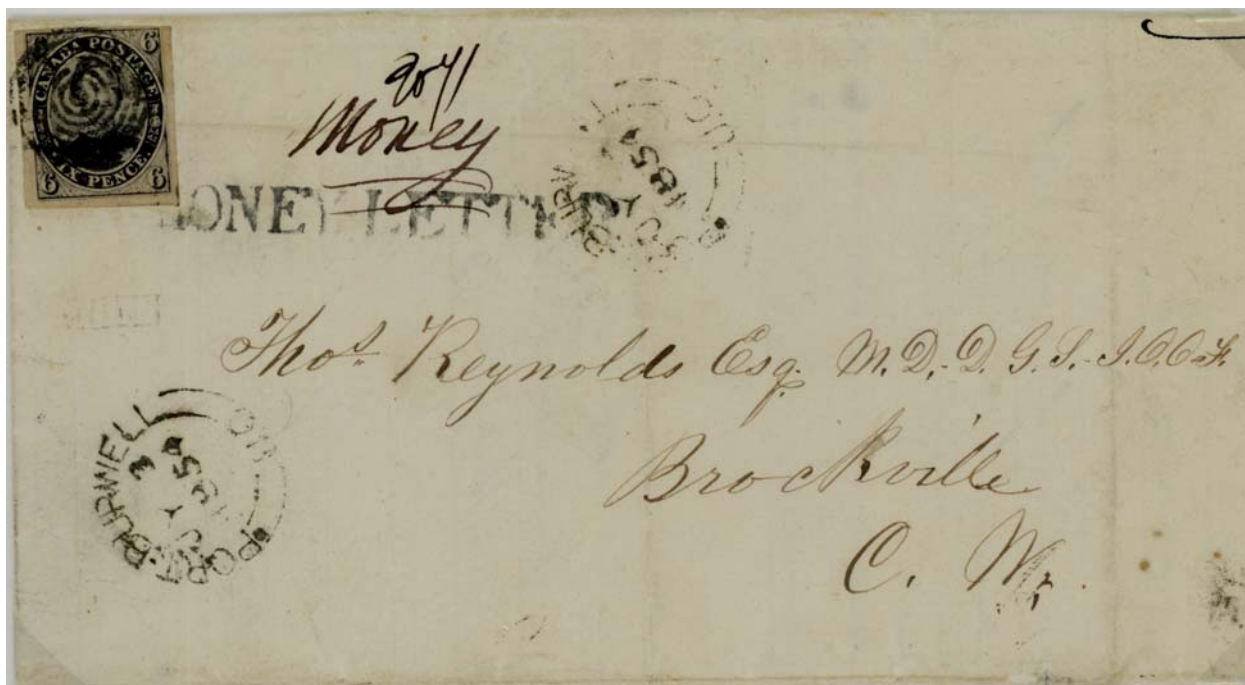 6 CANADA POSTAGE 6
6 SIX PENCE 6
Money
MONEY LETTER
BURW
UC
185
Thos Reynolds Esq. M.D. D.G.S. I.O.O.F.
Brockville
C. W.
PORT BURWELL UC
JY 3
185